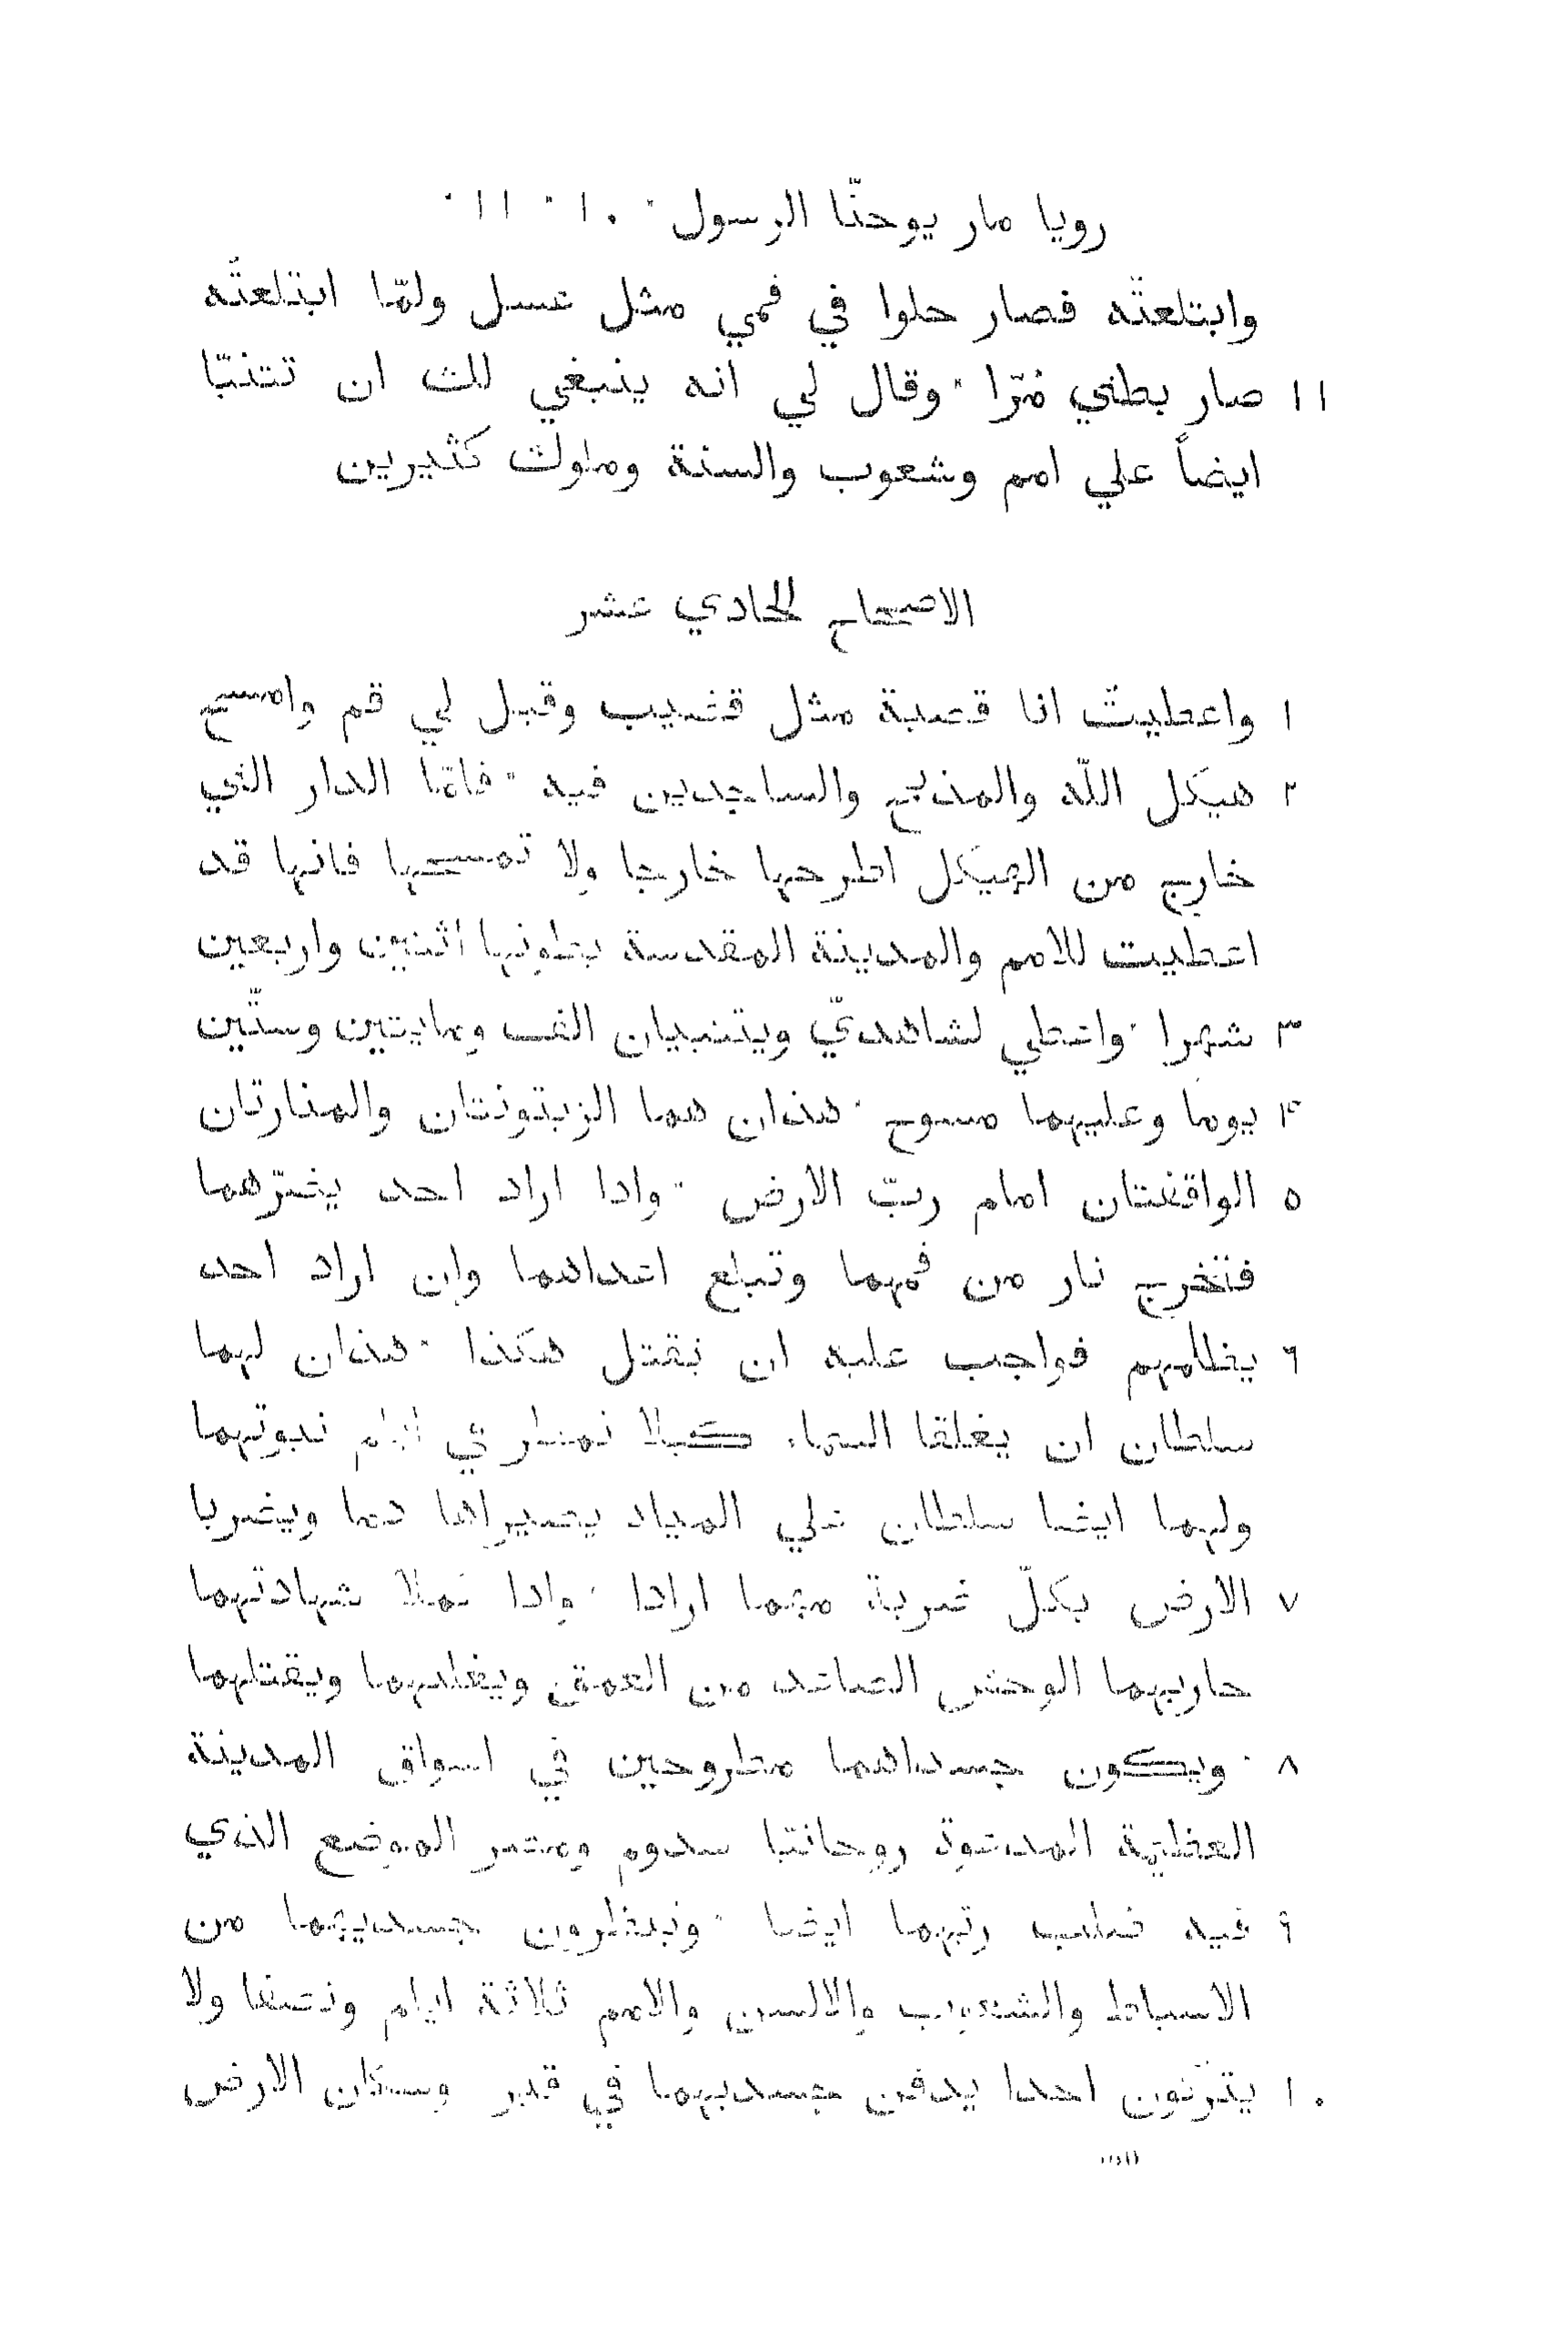 رويا مار يوحنّا الرسول ٠ ١٠ ٠ ١١ ٠
وابتلعته فصار حلوا في فمي مثل عسل ولمّا ابتلعته
١١ صار بطني مُرّا ٠ وقال لي انه ينبغي لك ان تتنبّا
ايضاً علي امم وشعوب والسنة وملوك كثيرين
الاصحاح الحادي عشر
١ واعطيت انا قصبة مثل قضيب وقيل لي قم وامسح
٢ هيكل اللّه والمذبح والساجدين فيه ٠ فامّا الدار التي
خارج من الهيكل اطرحها خارجا ولا تمسحها فانها قد
اعطيت للامم والمدينة المقدسة يطونها اثنين واربعين
٣ شهرا ٠ واعطي لشاهديّ ويتنبيان الف ومايتين وستّين
۴ يوما وعليهما مسوح ٠ هذان هما الزيتونتان والمنارتان
٥ الواقفتان امام ربّ الارض ٠ واذا اراد احد يضرّهما
فتخرج نار من فمهما وتبلع اعداهما وان اراد احد
٦ يظلمهم فواجب عليه ان يقتل هكذا ٠ هذان لهما
سلطان ان يغلقا السماء كيلا تمطر في ايام نبوتهما
ولهما ايضا سلطان علي المياه يصيراها دما ويضربا
٧ الارض بكلّ ضربة مهما ارادا ٠ واذا تملا شهادتهما
حاربهما الوحش الصاعد من العمق ويغلبهما ويقتلهما
٨ ٠ ويكون جسداهما مطروحين في اسواق المدينة
العظيمة المدعوة روحانيا سدوم ومصر الموضع الذي
٩ فيه صلب ربّهما ايضا ٠ وينظرون جسديهما من
الاسباط والشعوب والالسن والامم ثلاثة ايام ونصفا ولا
١٠ يتركون احدا يدفن جسديهما في قبر وسكان الارض